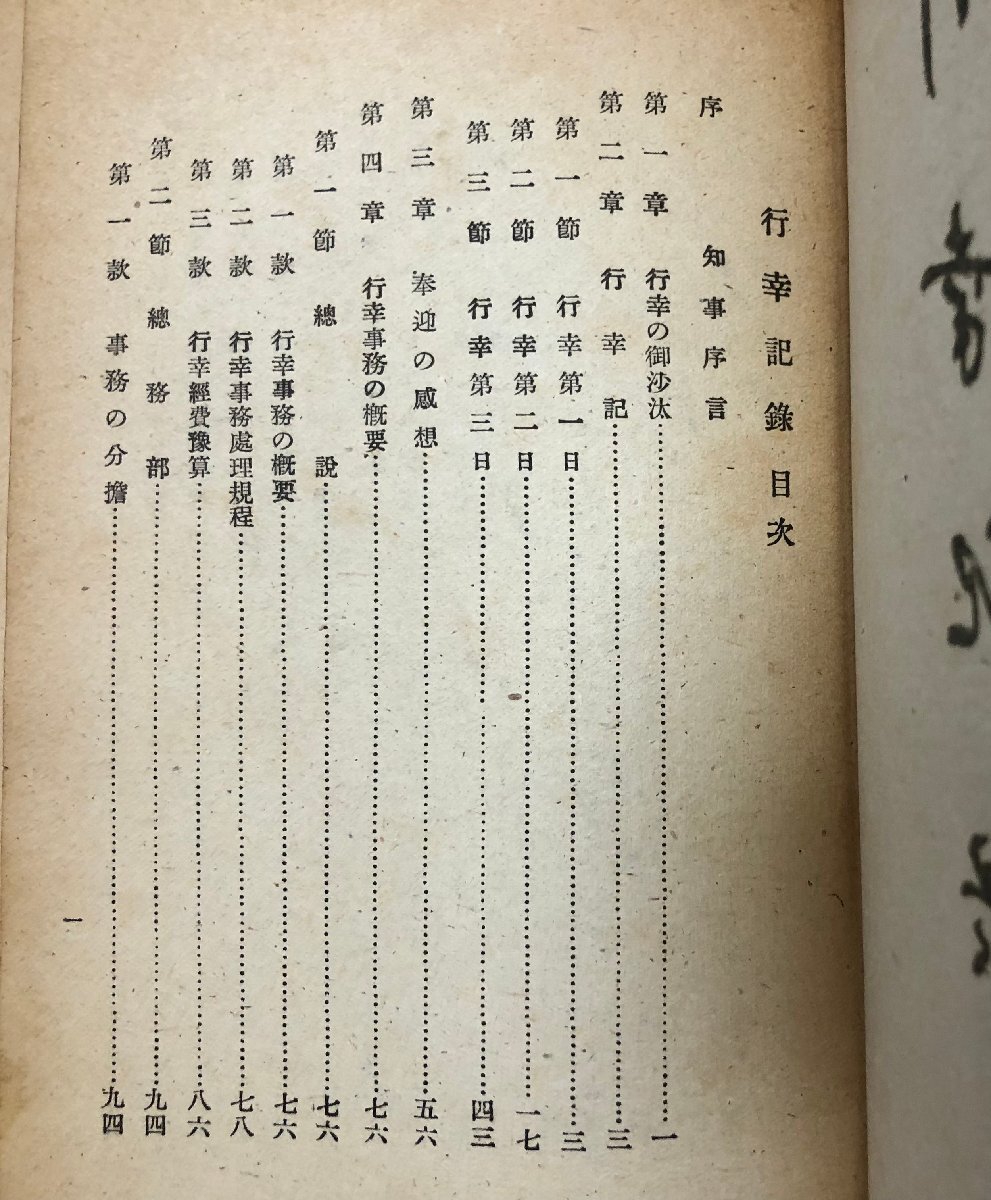 行幸記錄目次
序 知事序言
第一章 行幸の御沙汰……一
第二章 行幸記……三
第一節 行幸第一日……三
第二節 行幸第二日……一七
第三節 行幸第三日……四三
第三章 奉迎の感想……五六
第四章 行幸事務の概要……七六
第一節 總說……七六
第一款 行幸事務の概要……七六
第二款 行幸事務處理規程……七八
第三款 行幸經費豫算……八六
第二節 總務部……九四
第一款 事務の分擔……九四
一